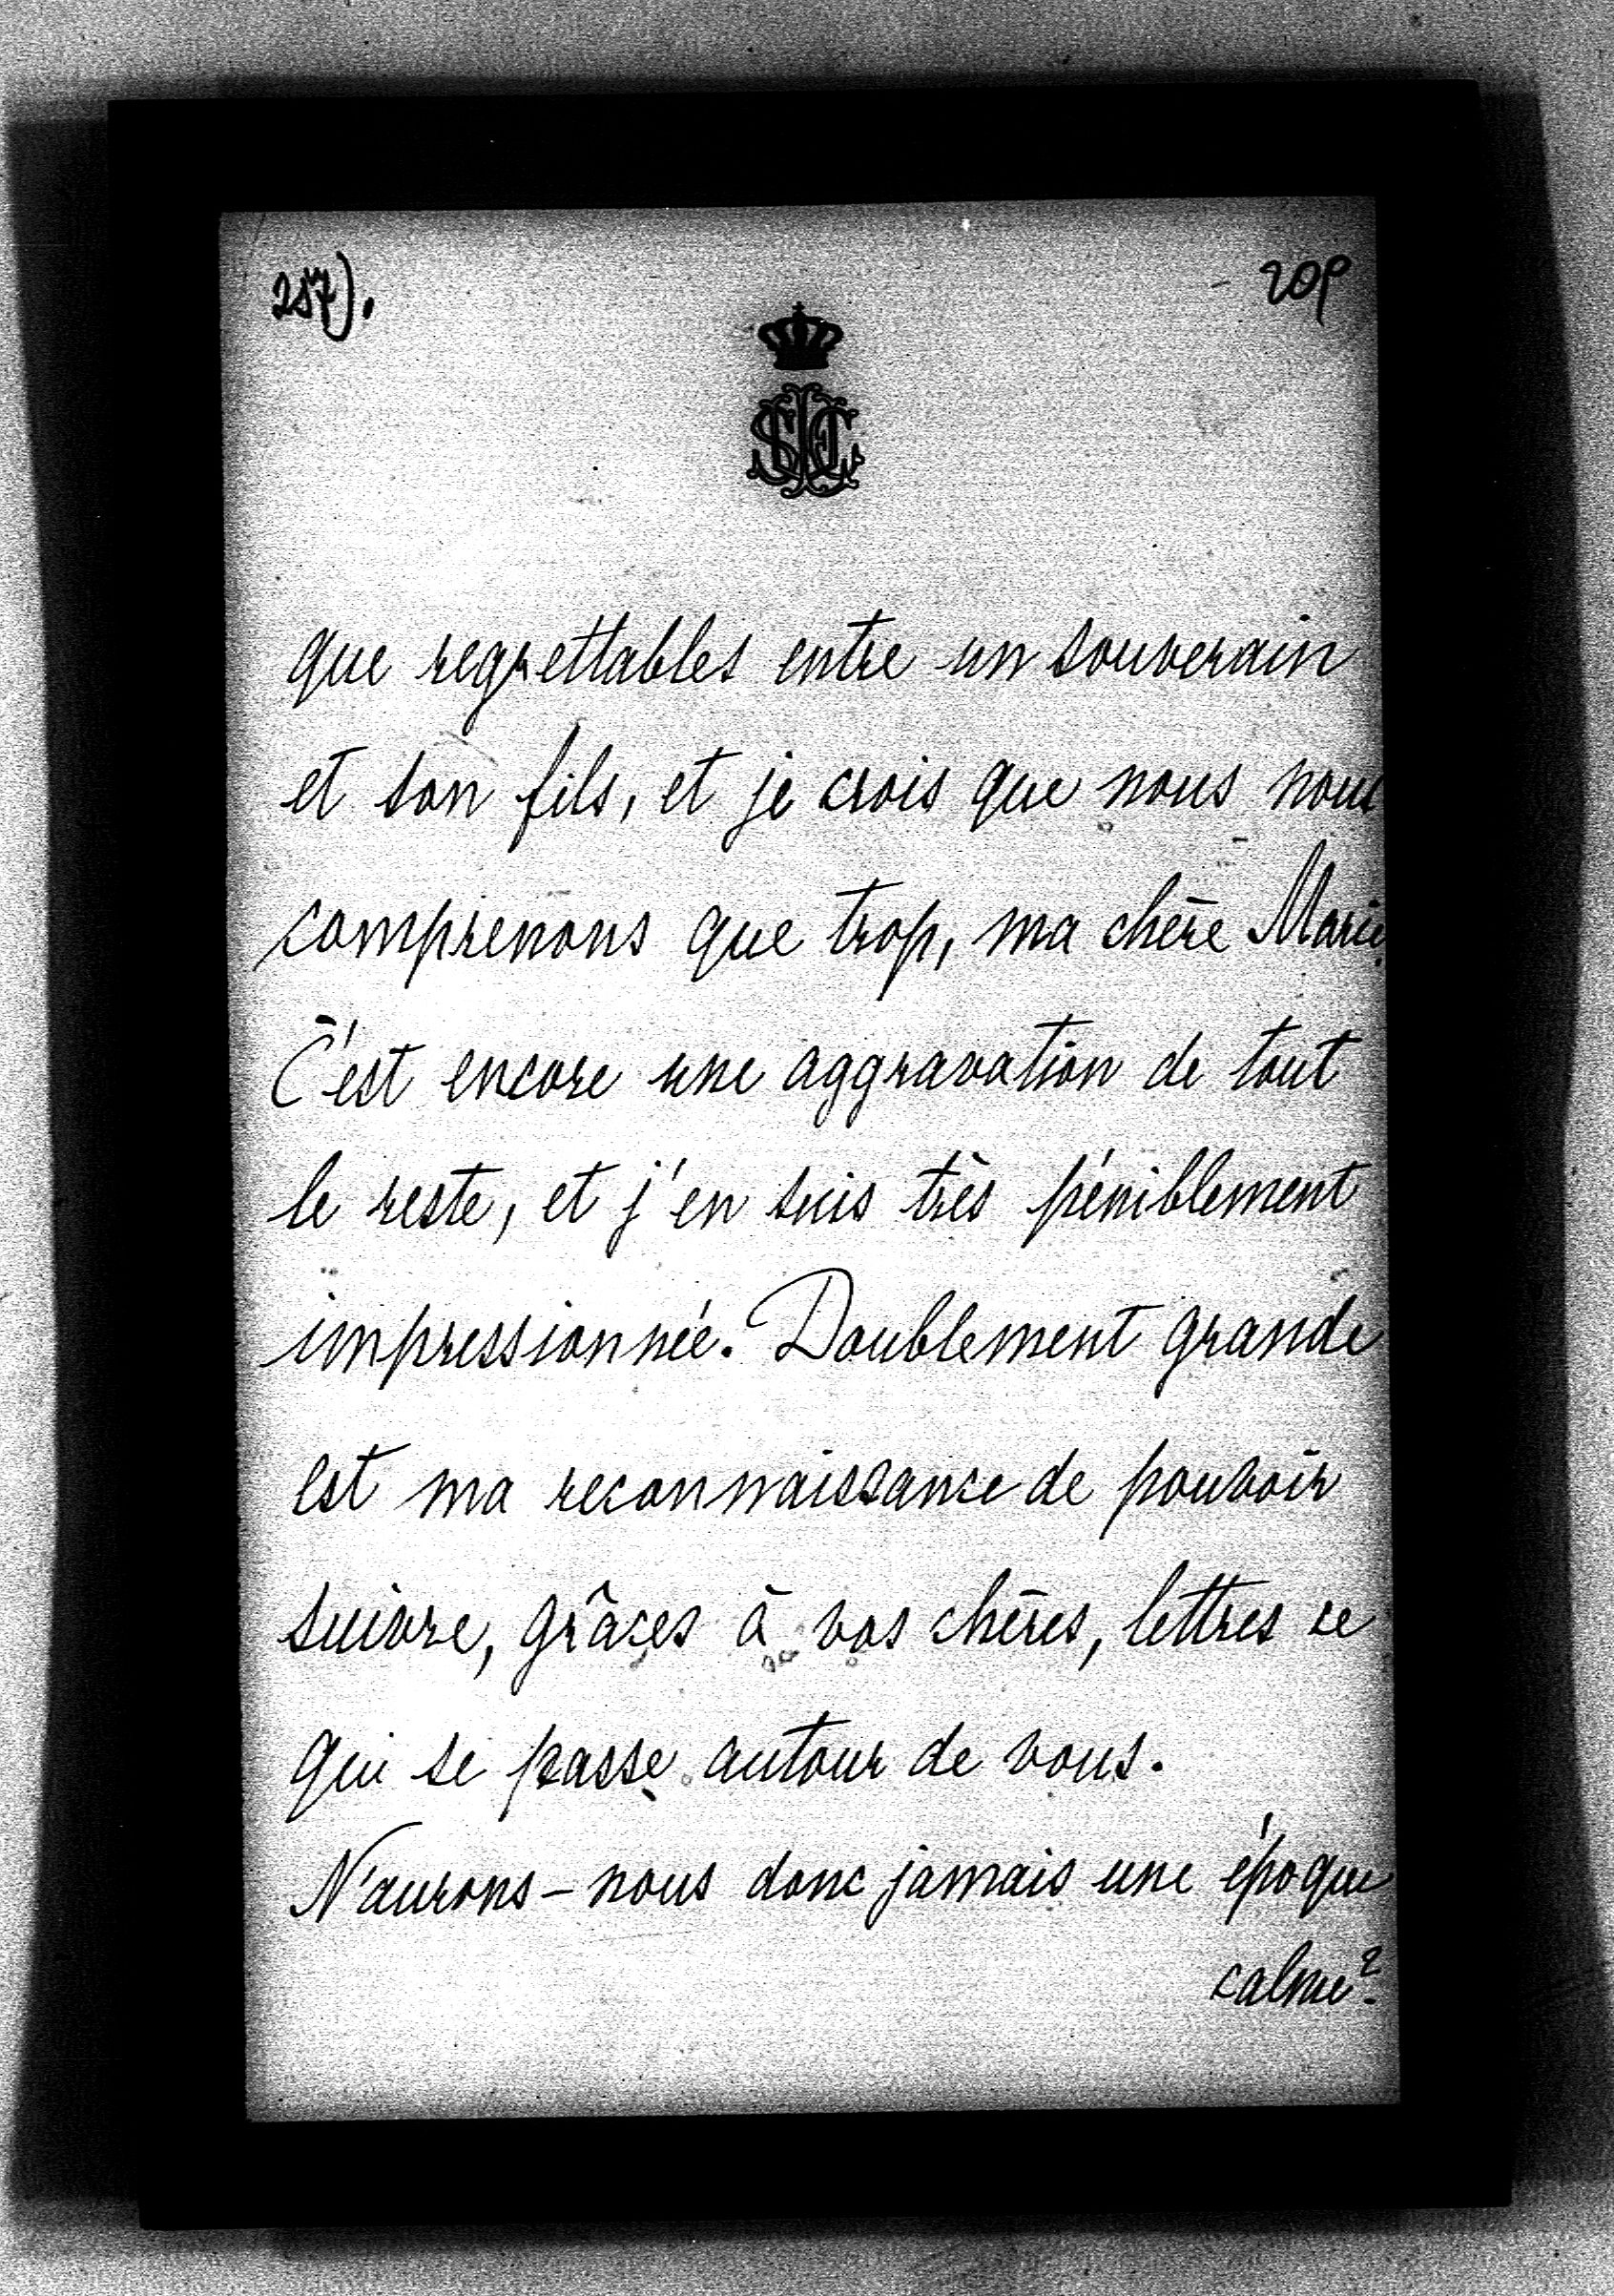 257).
209
que regrettables entre un souverain
et son fils, et je crois que nous nous
comprenons que trop, ma chère Marie.
C'est encore une aggravation de tout
le reste, et j'en suis très péniblement
impressionnée. Doublement grande
est ma reconnaissance de pouvoir
suivre, grâces à vos chères, lettres ce
qui se passe autour de vous.
N'aurons-nous donc jamais une époque
calme?